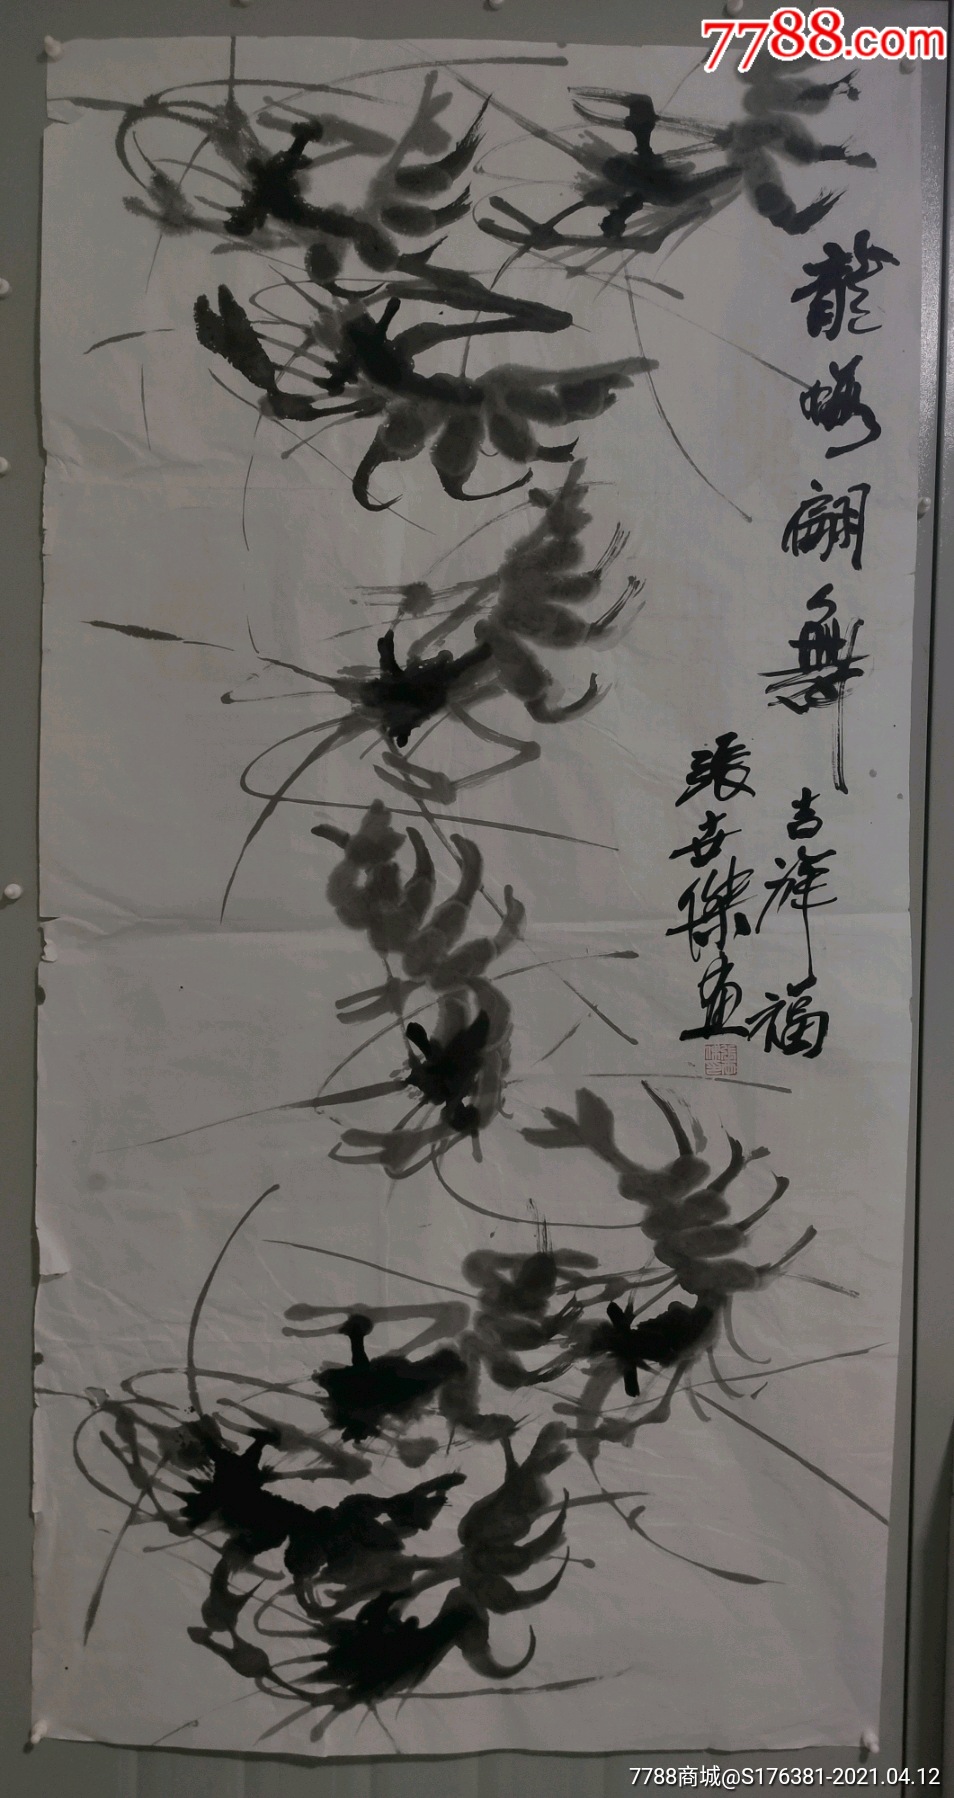 7788.com
龍蝦翩舞
吉祥福
張世傑画
7788商城@S176381-2021.04.12